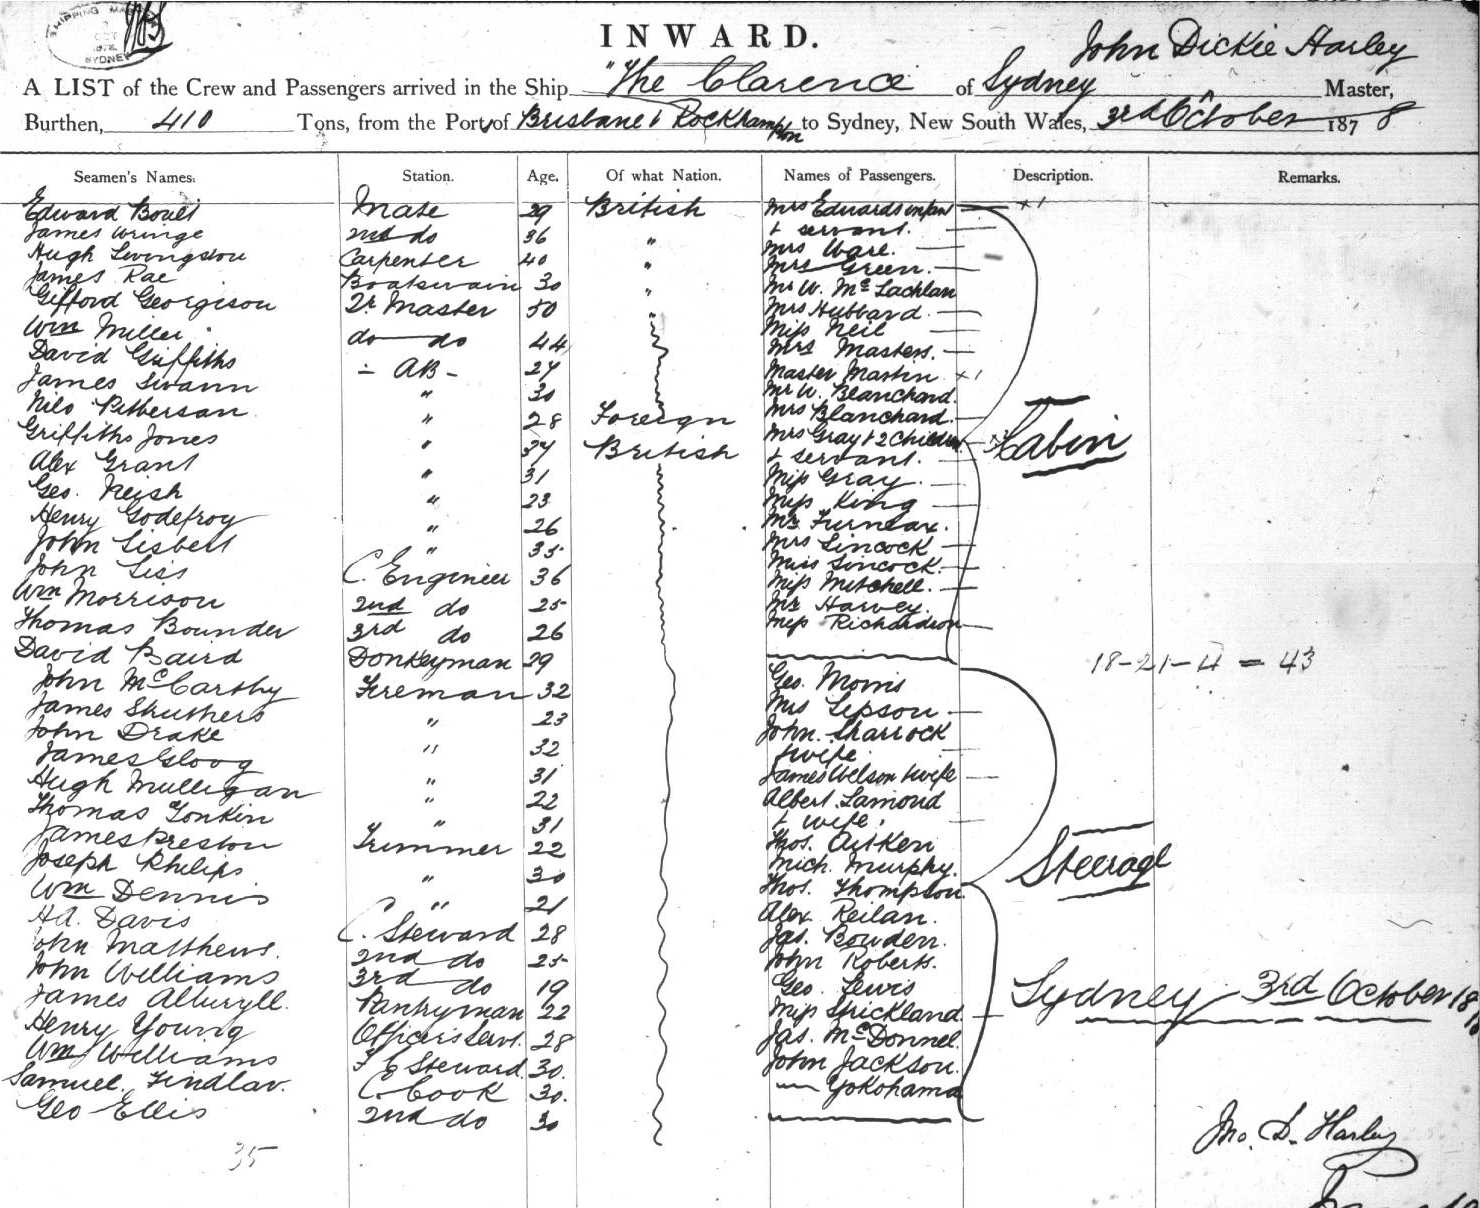 SHIPPING MASTER
OCT
1878
SYDNEY
INWARD.
John Dickie Harley
A LIST of the Crew and Passengers arrived in the Ship "The Clarence of Sydney Master,
Burthen, 410 Tons, from the Port of Brisbane & Rockhampton to Sydney, New South Wales, 3rd October 1878
Seamen's Names. Station. Age. Of what Nation. Names of Passengers. Description. Remarks.
Edward Boult Mate 29 British Mrs Edwards infan
James Wringe 2nd do 36 " & servant.
Hugh Livingston Carpenter 40 " Mrs Ware.
James Rae Boatswain 30 " Mrs Green.
Gifford Georgison Qr Master 50 " Mr W. McLachlan
Wm Miller do do 44 Mrs Hubbard
David Griffiths - AB - 24 Miss Neil
James Swann " 30 Mrs Masters.
Nils Petterson " 28 Foreign Master Martin
Griffiths Jones " 34 British Mr W. Blanchard.
Alex Grant " 31 Mrs Blanchard
Geo. Neish " 23 Mrs Gray & 2 Children
Henry Godefroy " 26 & servant.
John Gisbert " 35 Miss Gray
John Liss C. Engineer 36 Miss King
Wm Morrison 2nd do 25 Mr Furneax.
Thomas Bounder 3rd do 26 Mrs Lincock
David Baird Donkeyman 29 Miss Lincock.
John McCarthy Fireman 32 Miss Mitchell.
James Struthers " 23 Mr Harvey.
John Drake " 32 Miss Richardson
Cabin
18-21-4 = 43
James Gloog " 31 Geo. Morris
Hugh Mulligan " 22 Mrs Lepson
Thomas Tonkin " 31 John Sharrock
James Preston Trimmer 22 & wife
Joseph Philips " 30 James Wilson & wife
Wm Dennis " 21 Albert Lamond
H.A. Davis C. Steward 28 & wife.
John Matthews. 2nd do 25 Thos. Aitken
John Williams 3rd do 19 Mich. Murphy.
James Pantryman 22 Thos. Thompson
Henry Young Officers Servt. 28 Alex Reilan.
Wm Williams F C Steward 30. Jas. Bowden.
Samuel Findlay. C. Cook 30. John Roberts.
Geo Ellis 2nd do 30 Geo. Lewis
Miss Strickland
Jas. McDonnel.
John Jackson.
Yokohama
Steerage
Sydney 3rd October 18
35
Jno. D. Harley